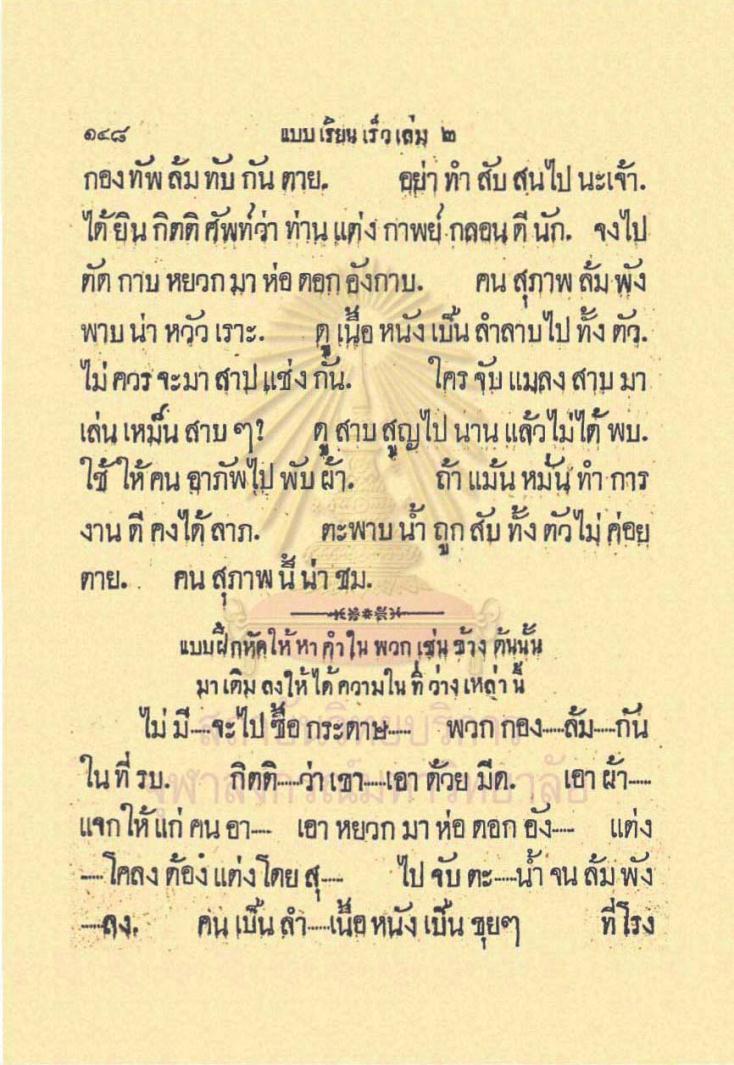 ๑๔๘ แบบ เรียน เร็ว เล่ม ๒
กอง ทัพ ล้ม ทับ กัน ตาย. อย่า ทำ สับ สน ไป นะ เจ้า.
ได้ ยิน กิตติ ศัพท์ ว่า ท่าน แต่ง กาพย์ กลอน ดี นัก. จง ไป
ตัด กาบ หยวก มา ห่อ ดอก อังกาบ. คน สุภาพ ล้ม พัง
พาบ น่า หวัว เราะ. ดู เนื้อ หนัง เปื้น ลำลาบ ไป ทั้ง ตัว.
ไม่ ควร จะ มา สาป แช่ง กัน. ใคร จับ แมลง สาบ มา
เล่น เหม็น สาบ ๆ? ดู สาบ สูญ ไป นาน แล้ว ไม่ ได้ พบ.
ใช้ ให้ คน อาภัพ ไป พับ ผ้า. ถ้า แม้น หมั่น ทำ การ
งาน ดี คง ได้ ลาภ. ตะพาบ น้ำ ถูก สับ ทั้ง ตัว ไม่ ค่อย
ตาย. คน สุภาพ นี้ น่า ชม.
แบบ ฝึก หัด ให้ หา คำ ใน พวก เช่น ข้าง ต้น นั้น
มา เติม ลง ให้ ได้ ความ ใน ที่ ว่าง เหล่า นี้
ไม่ มี----จะ ไป ซื้อ กระดาษ---- พวก กอง----ล้ม----กัน
ใน ที่ รบ. กิตติ----ว่า เขา----เอา ด้วย มีด. เอา ผ้า----
แจก ให้ แก่ คน อา---- เอา หยวก มา ห่อ ดอก อัง---- แต่ง
----โคลง ต้อง แต่ง โดย สุ---- ไป จับ ตะ----น้ำ จน ล้ม พัง
----ลง. คน เปื้น ลำ----เนื้อ หนัง เปื้น ขุย ๆ ที่ โรง
สถาบันวิทยบริการ
จุฬาลงกรณ์มหาวิทยาลัย